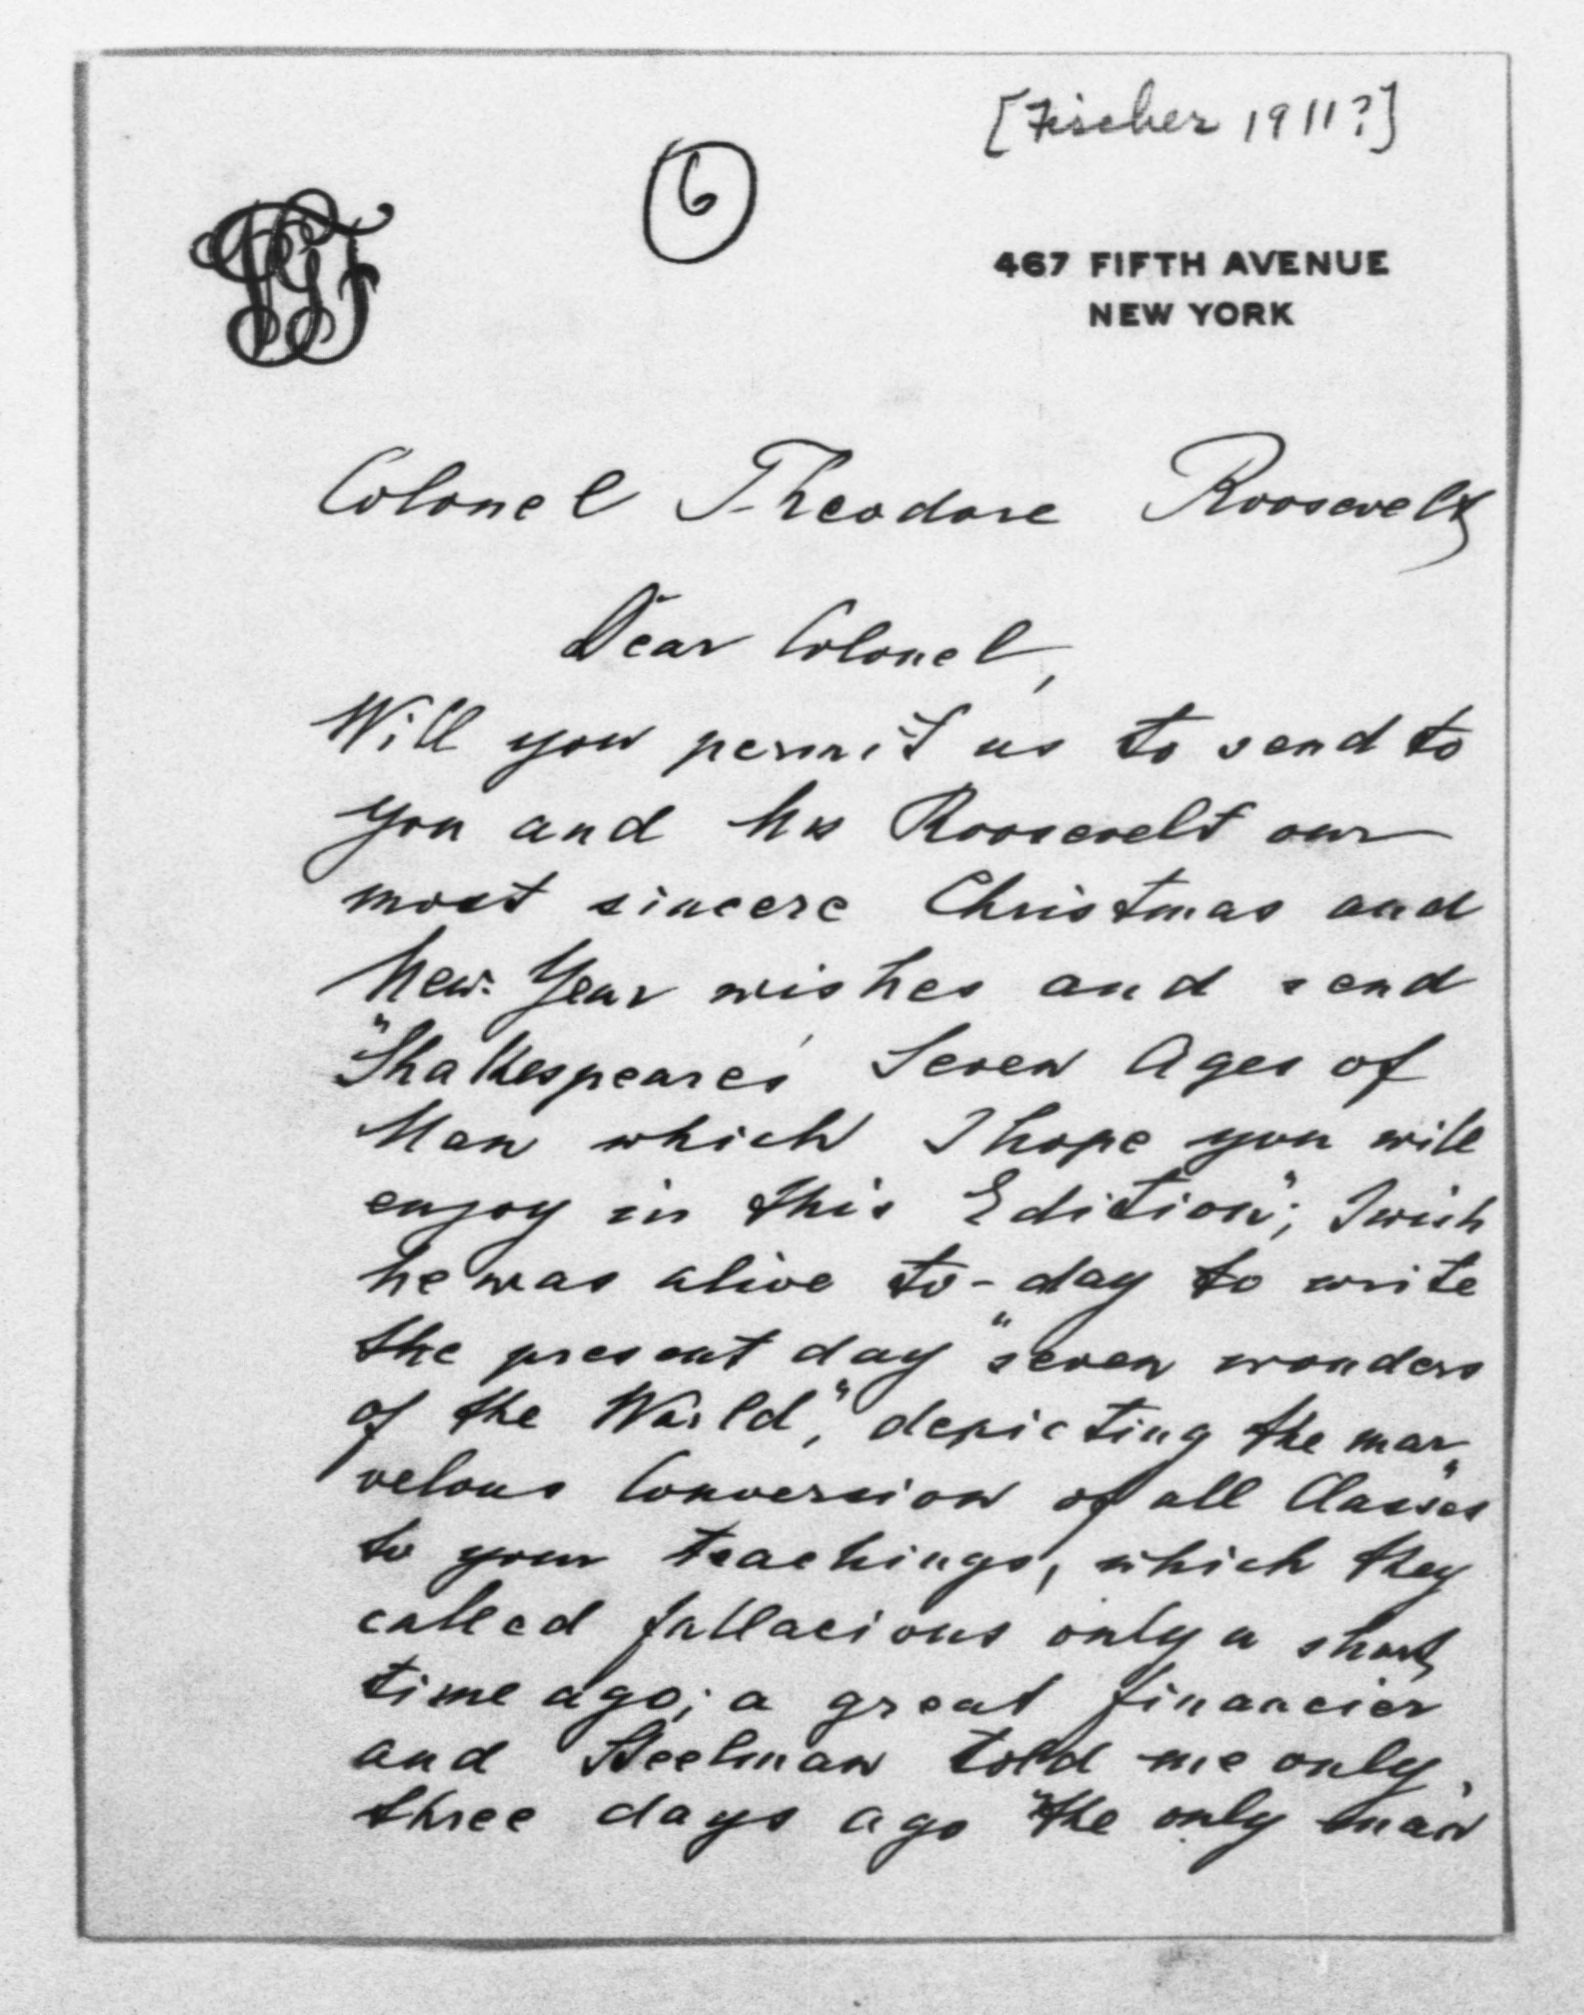 [Fischer 1911?]
6
467 FIFTH AVENUE
NEW YORK
Colonel Theodore Roosevelt
Dear Colonel,
Will you permit us to send to
you and Mrs Roosevelt our
most sincere Christmas and
New Year wishes and send
"Shakespeare's Seven Ages of
Man which I hope you will
enjoy in this Edition"; I wish
he was alive to-day to write
the present day "seven wonders
of the World," depicting the mar
velous Conversion of all "Classes"
to your teachings, which they
called fallacious only a short
time ago; a great financier
and Steelman told me only
three days ago "the only man